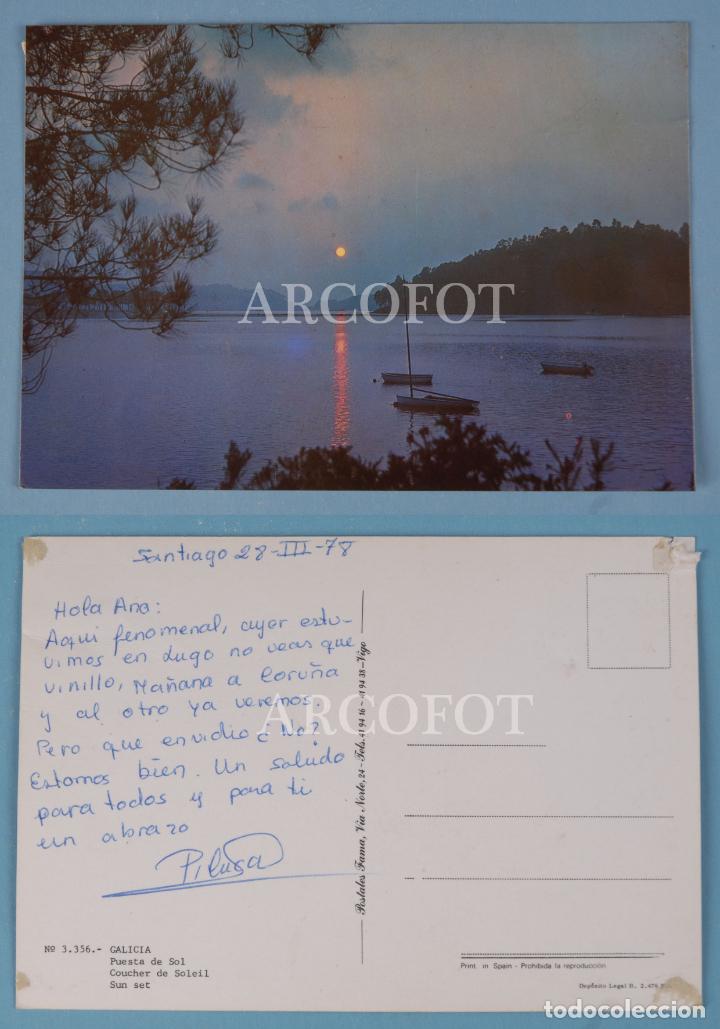 ARCOFOT
Santiago 28-III-78
Hola Ana:
Aqui fenomenal, ayer estu-
vimos en Lugo no veas que
vinillo, Mañana a Coruña
y al otro ya veremos.
Pero que envidia ¿No?
Estamos bien. Un saludo
para todos y para ti
un abrazo
Pilusa
ARCOFOT
Postales Fama, Vía Norte, 24 - Tels. 41 94 16 - 41 94 38 - Vigo
Nº 3.356.- GALICIA
Puesta de Sol
Coucher de Soleil
Sun set
Print. in Spain - Prohibida la reproducción
Depósito Legal B. 2.479
todocoleccion